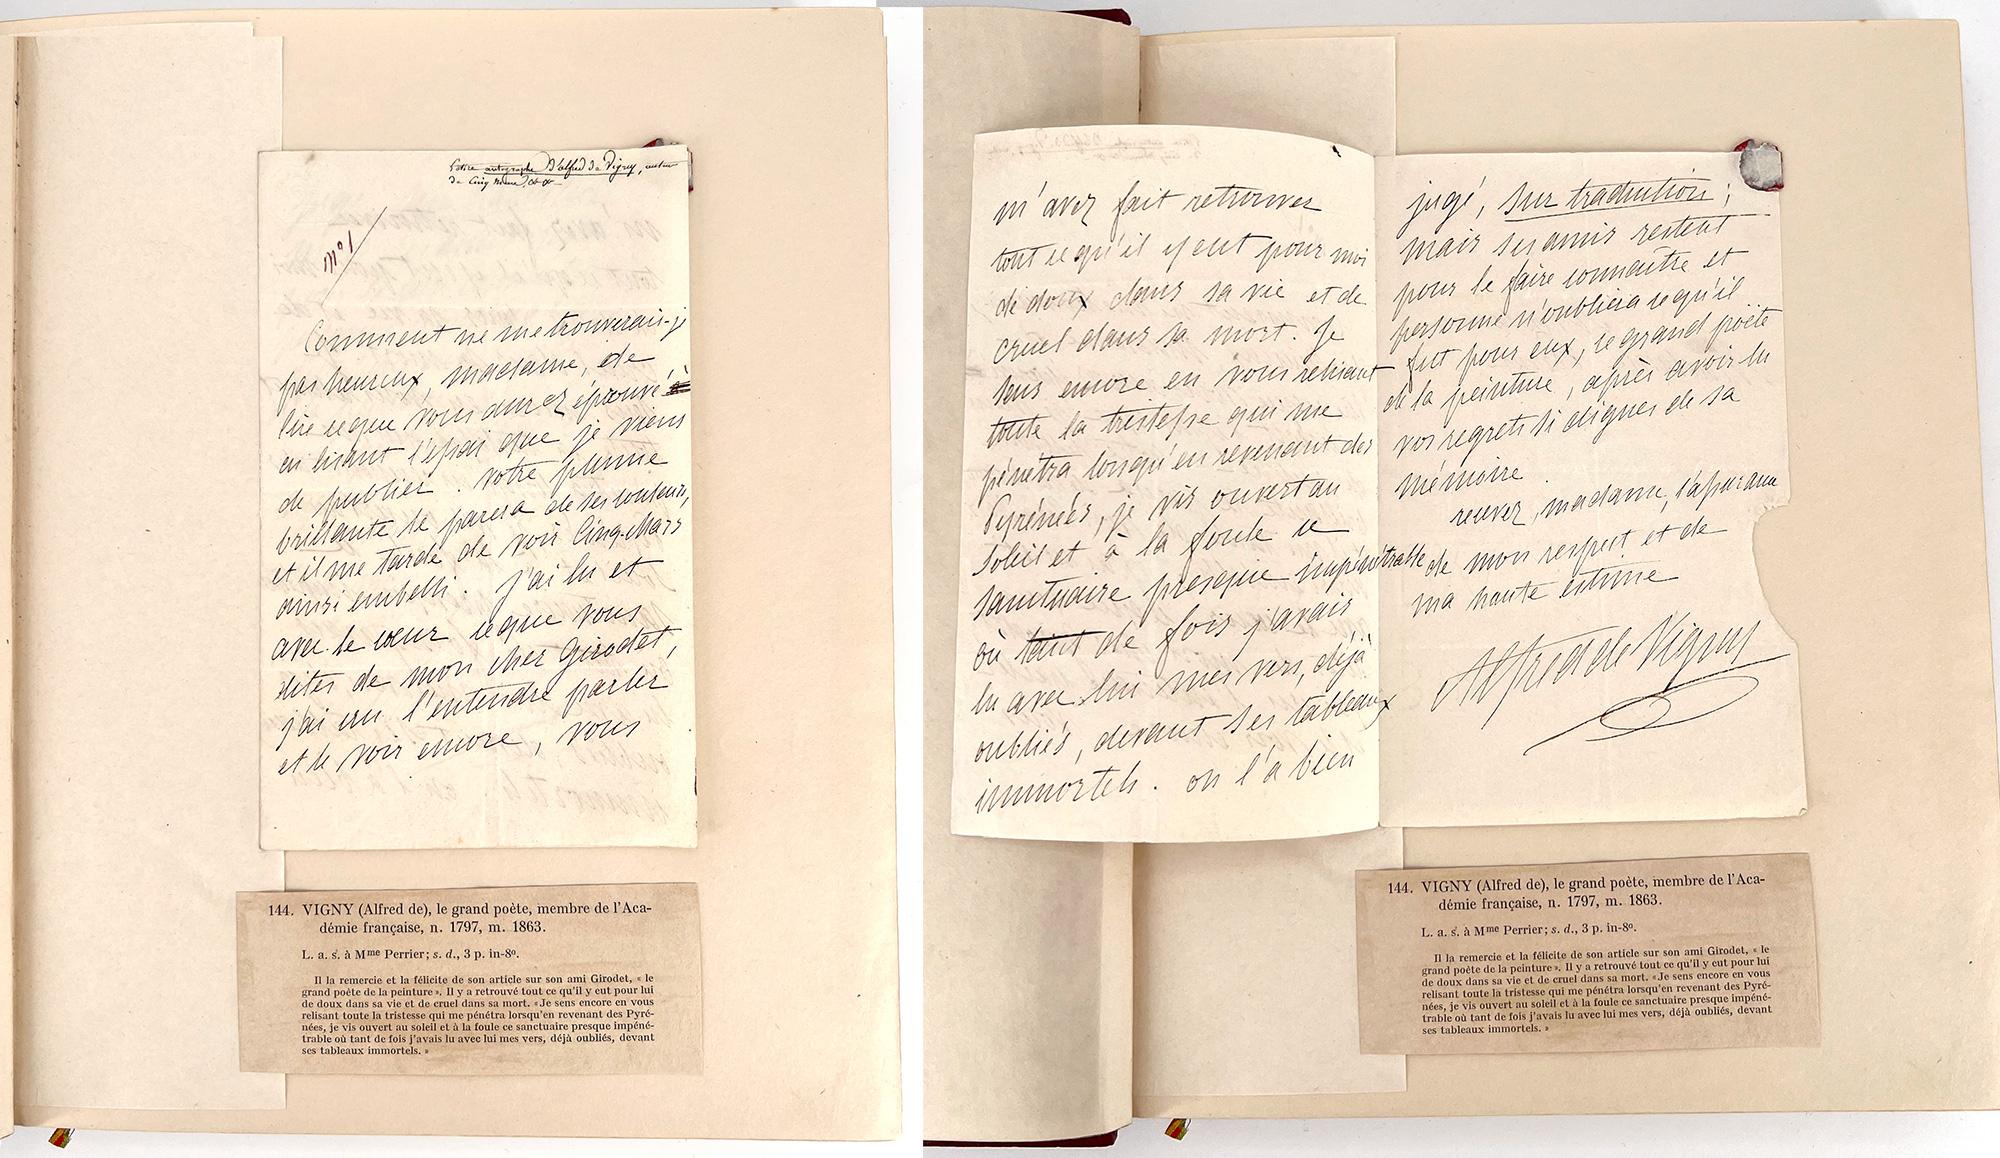 Lettre autographe d'alfred de Vigny, auteur
de Cinq Mars, &c &c
N°1
Comment ne me trouverais-je
pas heureux, madame, de
lire ce que vous aurez éprouvé
en lisant l'essai que je viens
de publier. votre plume
brillante le parera de ses couleurs,
et il me tarde de voir Cinq-Mars
ainsi embelli. j'ai lu et
avec le cœur ce que vous
dites de mon cher Girodet,
j'ai cru l'entendre parler
et le voir encore, vous
144. VIGNY (Alfred de), le grand poète, membre de l'Aca-
démie française, n. 1797, m. 1863.
L. a. s. à Mme Perrier; s. d., 3 p. in-8º.
Il la remercie et la félicite de son article sur son ami Girodet, « le
grand poète de la peinture ». Il y a retrouvé tout ce qu'il y eut pour lui
de doux dans sa vie et de cruel dans sa mort. «Je sens encore en vous
relisant toute la tristesse qui me pénétra lorsqu'en revenant des Pyré-
nées, je vis ouvert au soleil et à la foule ce sanctuaire presque impéné-
trable où tant de fois j'avais lu avec lui mes vers, déjà oubliés, devant
ses tableaux immortels. »
m'avez fait retrouver
tout ce qu'il y eut pour moi
de doux dans sa vie et de
cruel dans sa mort. Je
sens encore en vous relisant
toute la tristesse qui me
pénétra lorsqu'en revenant des
Pyrénées, je vis ouvert au
soleil et à la foule ce
sanctuaire presque impénétrable
où tant de fois j'avais
lu avec lui mes vers, déjà
oubliés, devant ses tableaux
immortels. on l'a bien
jugé, sur traduction;
mais ses amis restent
pour le faire connaître et
personne n'oubliera ce qu'il
fut pour eux, ce grand poëte
de la peinture, après avoir lu
vos regrets si dignes de sa
mémoire.
recevez, madame, l'assurance
de mon respect et de
ma haute estime
Alfred de Vigny
144. VIGNY (Alfred de), le grand poète, membre de l'Aca-
démie française, n. 1797, m. 1863.
L. a. s. à Mme Perrier; s. d., 3 p. in-8º.
Il la remercie et la félicite de son article sur son ami Girodet, « le
grand poète de la peinture ». Il y a retrouvé tout ce qu'il y eut pour lui
de doux dans sa vie et de cruel dans sa mort. «Je sens encore en vous
relisant toute la tristesse qui me pénétra lorsqu'en revenant des Pyré-
nées, je vis ouvert au soleil et à la foule ce sanctuaire presque impéné-
trable où tant de fois j'avais lu avec lui mes vers, déjà oubliés, devant
ses tableaux immortels. »